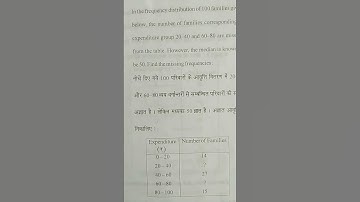 In the frequency distribution of 100 families gi
below, the number of families corresponding
expenditure group 20-40 and 60-80 are miss
from the table. However, the median is known
be 50. Find the missing frequencies.
नीचे दिए गये 100 परिवारों के आवृत्ति वितरण में 20
और 60-80 व्यय वर्गान्तरों से सम्बन्धित परिवारों की
अज्ञात है । लेकिन मध्यका 50 ज्ञात है । अज्ञात आवृ
निकालिए :
Expenditure Number of Families
(₹)
0 – 20 14
20 – 40 ?
40 – 60 27
60 – 80 ?
80 – 100 15